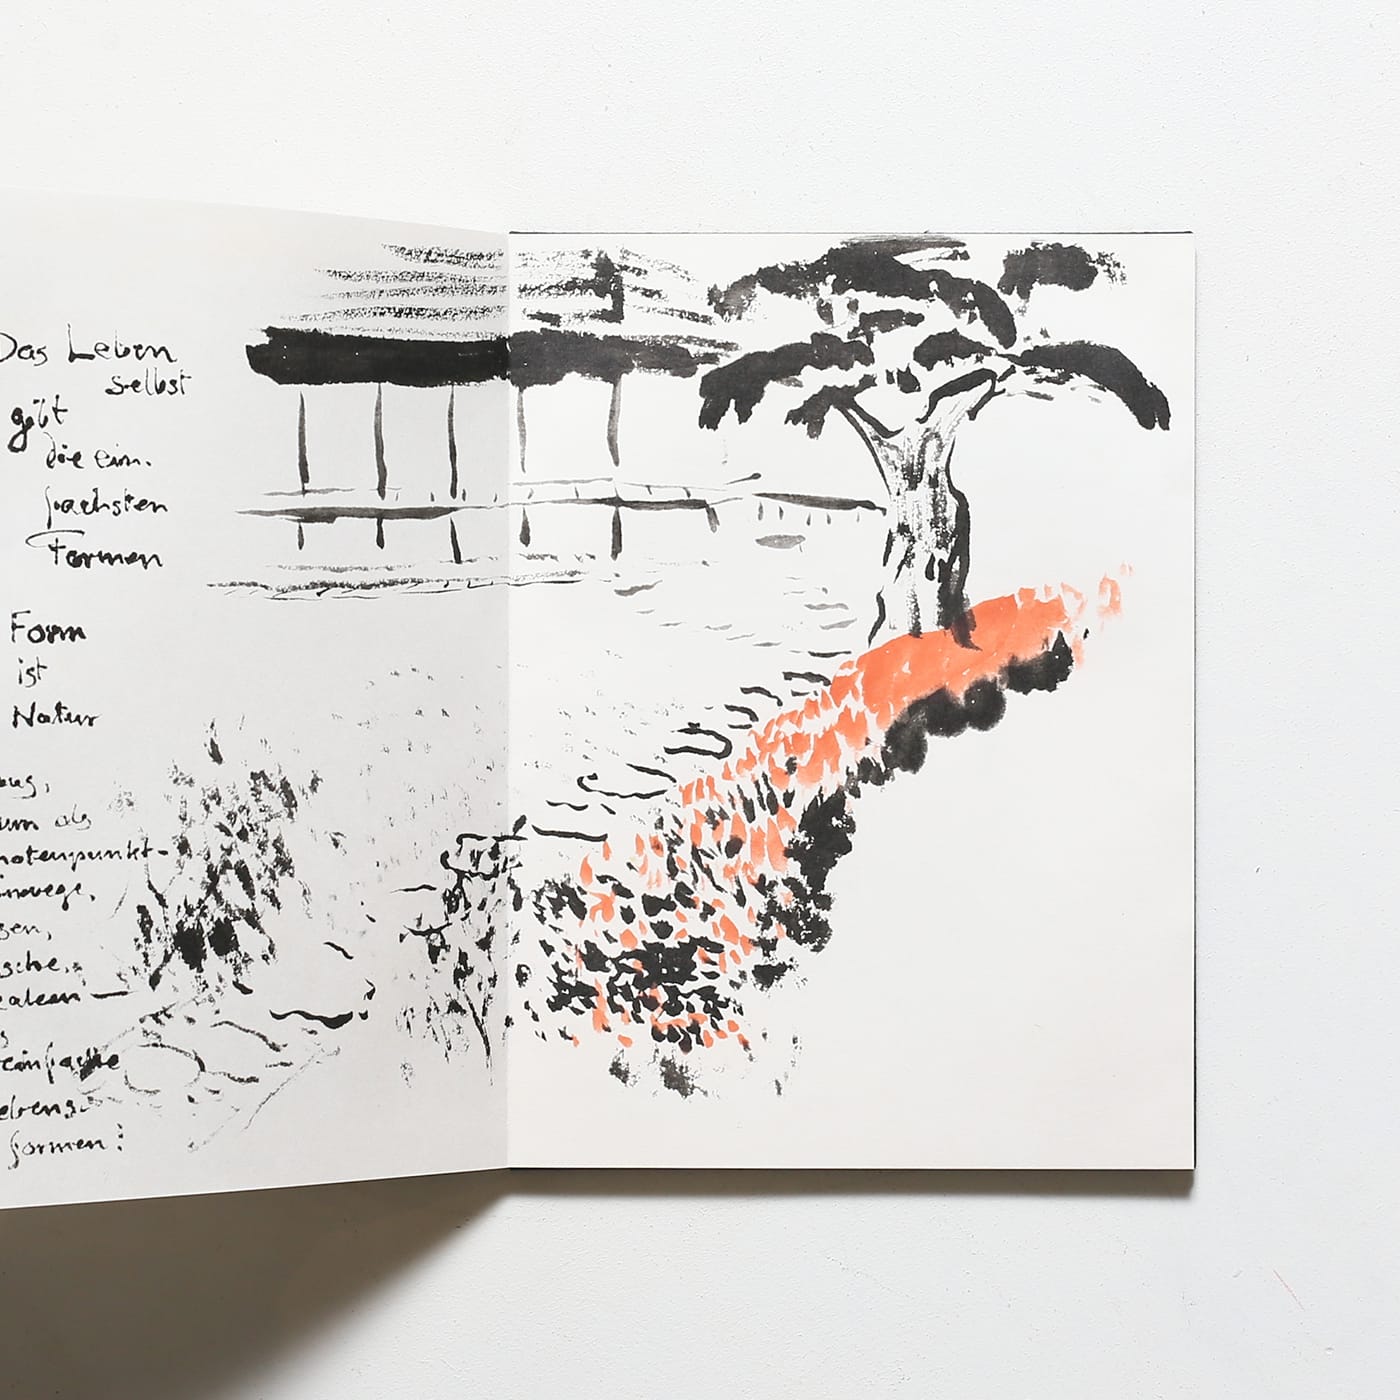 Das Leben
selbst
gibt
die ein-
fachsten
Formen
Form
ist
Natur
um als
notenpunkt-
inwege,
einfache
ebens-
formen!